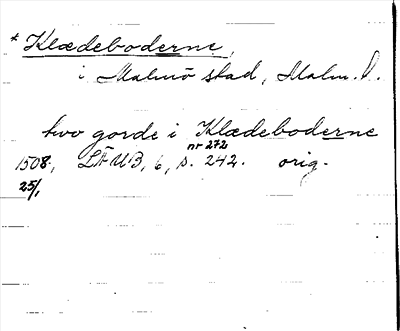 * Klædeboderne,
i Malmö stad, Malm. l.
two gorde i Klædeboderne
nr 272
1508, LÄUB, 6, s. 242. orig.
25/1